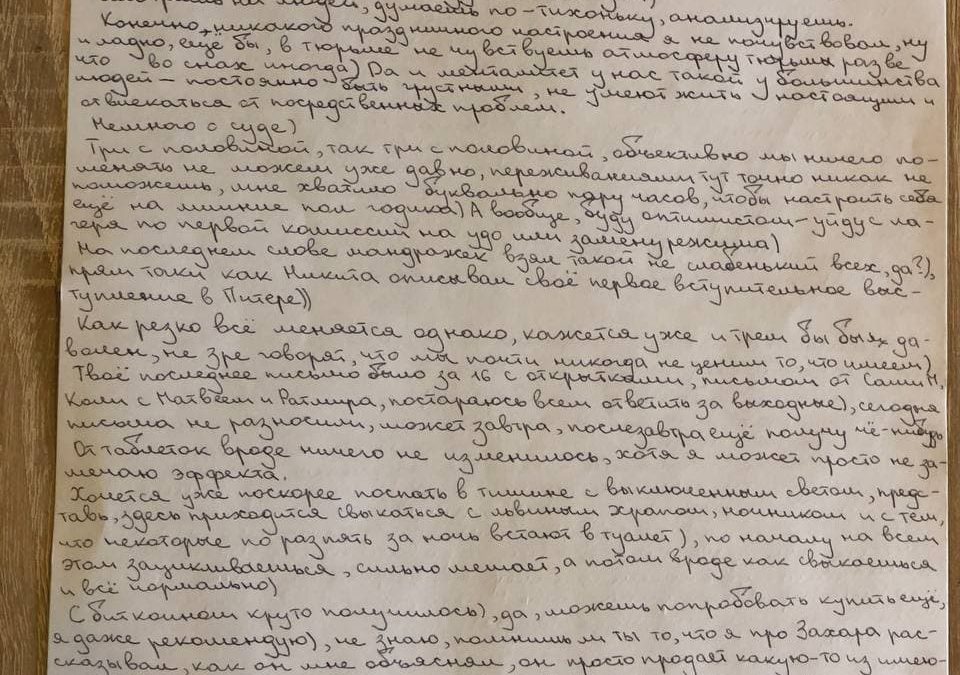 людей, думаешь по-тихоньку, анализируешь.
Конечно, никакого праздничного настроения я не почувствовал, ну
и ладно, ещё бы, в тюрьме не чувствуешь атмосферу тюрьмы разве
что во снах иногда) Да и менталитет у нас такой у большинства
людей – постоянно быть грустными, не умеют жить настоящим и
отвлекаться от посредственных проблем.
Немного о суде)
Три с половиной, так три с половиной, объективно мы ничего по-
менять не можем уже давно, переживаниями тут точно никак не
поможешь, мне хватило буквально пару часов, чтобы настроить себя
ещё на лишние пол годика) А вообще, буду оптимистом – уйду с ла-
геря по первой комиссии на удо или замену режима)
На последнем слове мандражек взял такой не слабенький всех, да?),
прям таки как Никита описывал своё первое вступительное выс-
тупление в Питере))
Как резко всё меняется однако, кажется уже и трем бы был до-
волен, не зря говорят, что мы почти никогда не ценим то, что имеем)
Твоё последнее письмо было за 16 с открытками, письмом от Саши М,
Коли с Матвеем и Ратмира, постараюсь всем ответить за выходные), сегодня
письма не разносили, может завтра, послезавтра ещё получу чё-нибудь
От таблеток вроде ничего не изменилось, хотя я может просто не за-
мечаю эффекта.
Хочется уже поскорее поспать в тишине с выключенным светом, предс-
тавь, здесь приходится свыкаться с львиным храпом, ночником и с тем,
что некоторые по раз пять за ночь встают в туалет), по началу на всем
этом зацикливаешься, сильно мешает, а потом вроде как свыкаешься
и всё нормально)
С биткоином круто получилось), да, можешь попробовать купить ещё,
я даже рекомендую), не знаю, помнишь ли ты то, что я про Захара рас-
сказывал, как он мне объяснял, он просто продаёт какую-то из имею-